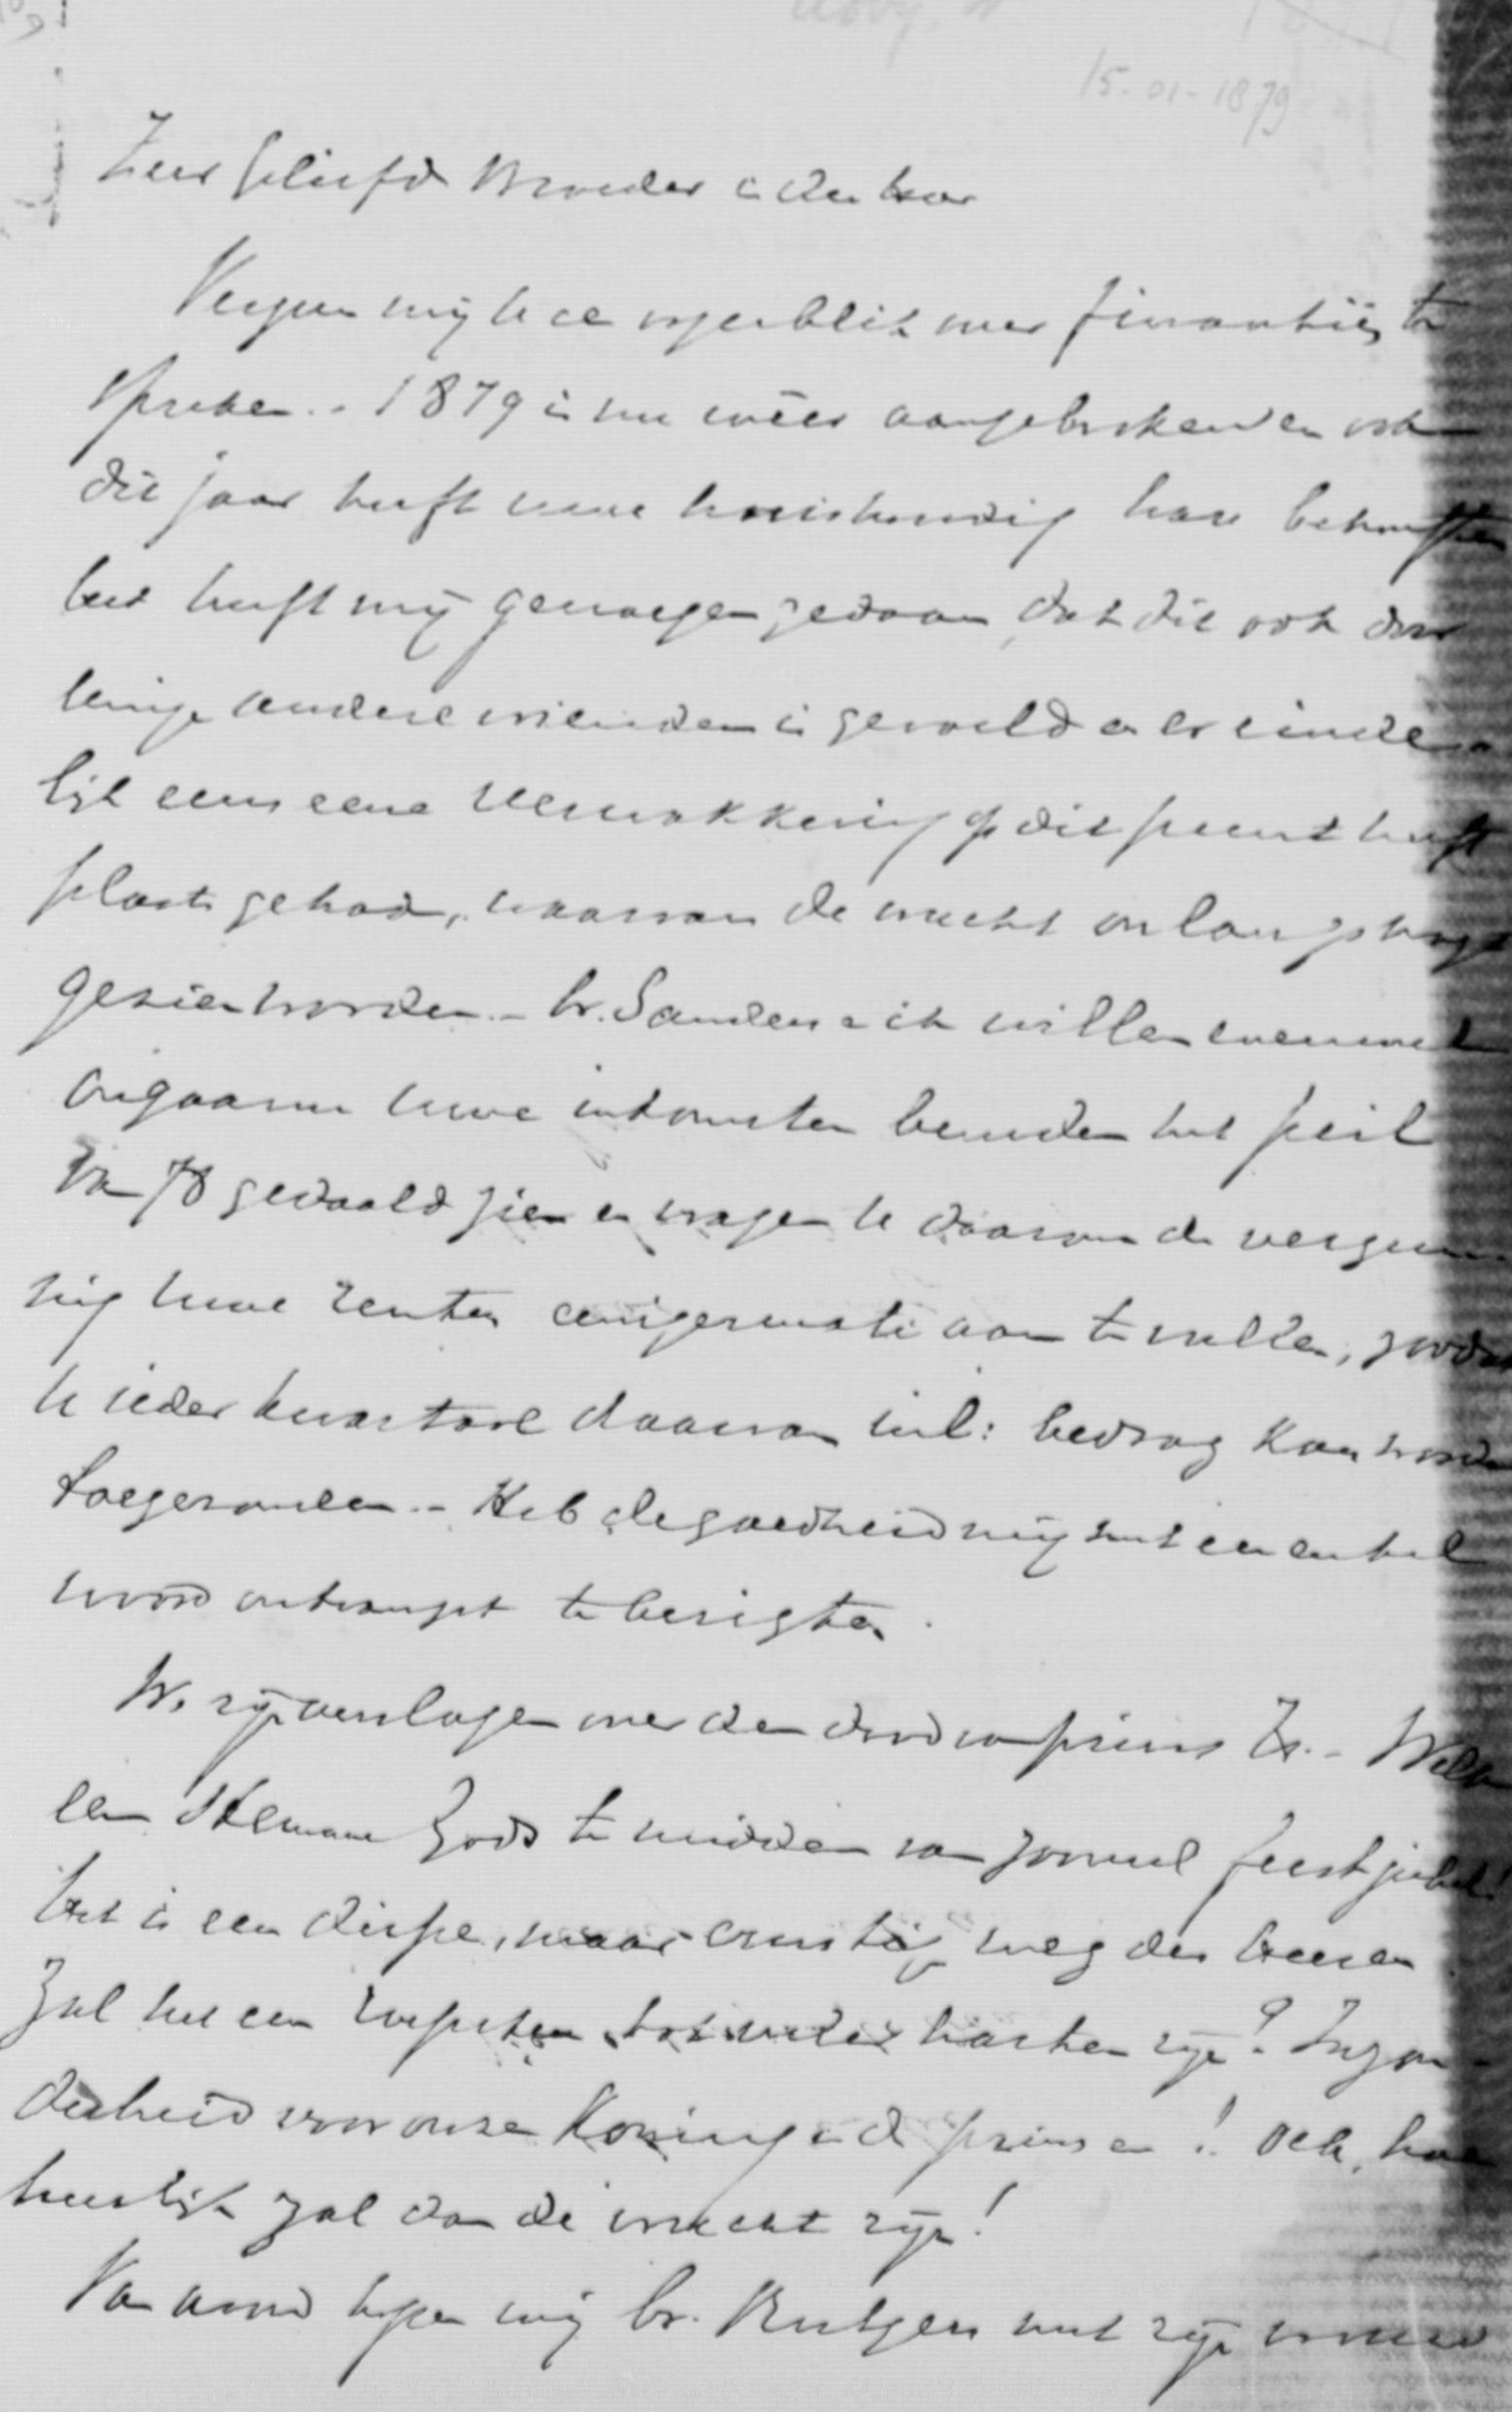 15-01-1879
Zeer Geliefde Broeder in den Heer
Vergun mij U een oogenblik over financiën te
spreken. - 1879 is nu weêr aangebroken en ook
dit jaar heeft uwe huishouding hare behoeften
het heeft mij genoegen gedaan dat dit ook door
eenige andere vrienden is gevoeld en er eindelijk
lijk eens eene verwakkering op dit punt heeft
plaats gehad, waarvan de vrucht onlangs mogt
gezien worden. - br. Sanders en ik willen evenwel
ongaarne uwe inkomsten beneden het peil
van 78 gedaald zien en vragen U daarom de vergun
ning uwe renten eenigermate aan te vullen, zoodat
U ieder kwartaal daarvan inl: bedrag kan worden
toegezonden. - Heb de goedheid mij met een enkel
woord ontvangst te berigten.
We zijn verslagen over den dood van prins H. - Welk
een stemme Gods te midden van zooveel feestgejubel!
het is een diepe, maar ernstig weg des Heeren
Zal het een roepstem tot veler harten zijn? Inzon-
derheid voor onze Koning en de prinsen! Och, hoe
heerlijk zal dan de vrucht zijn!
Van avond hopen wij br. Rutgers met zijn vrouw